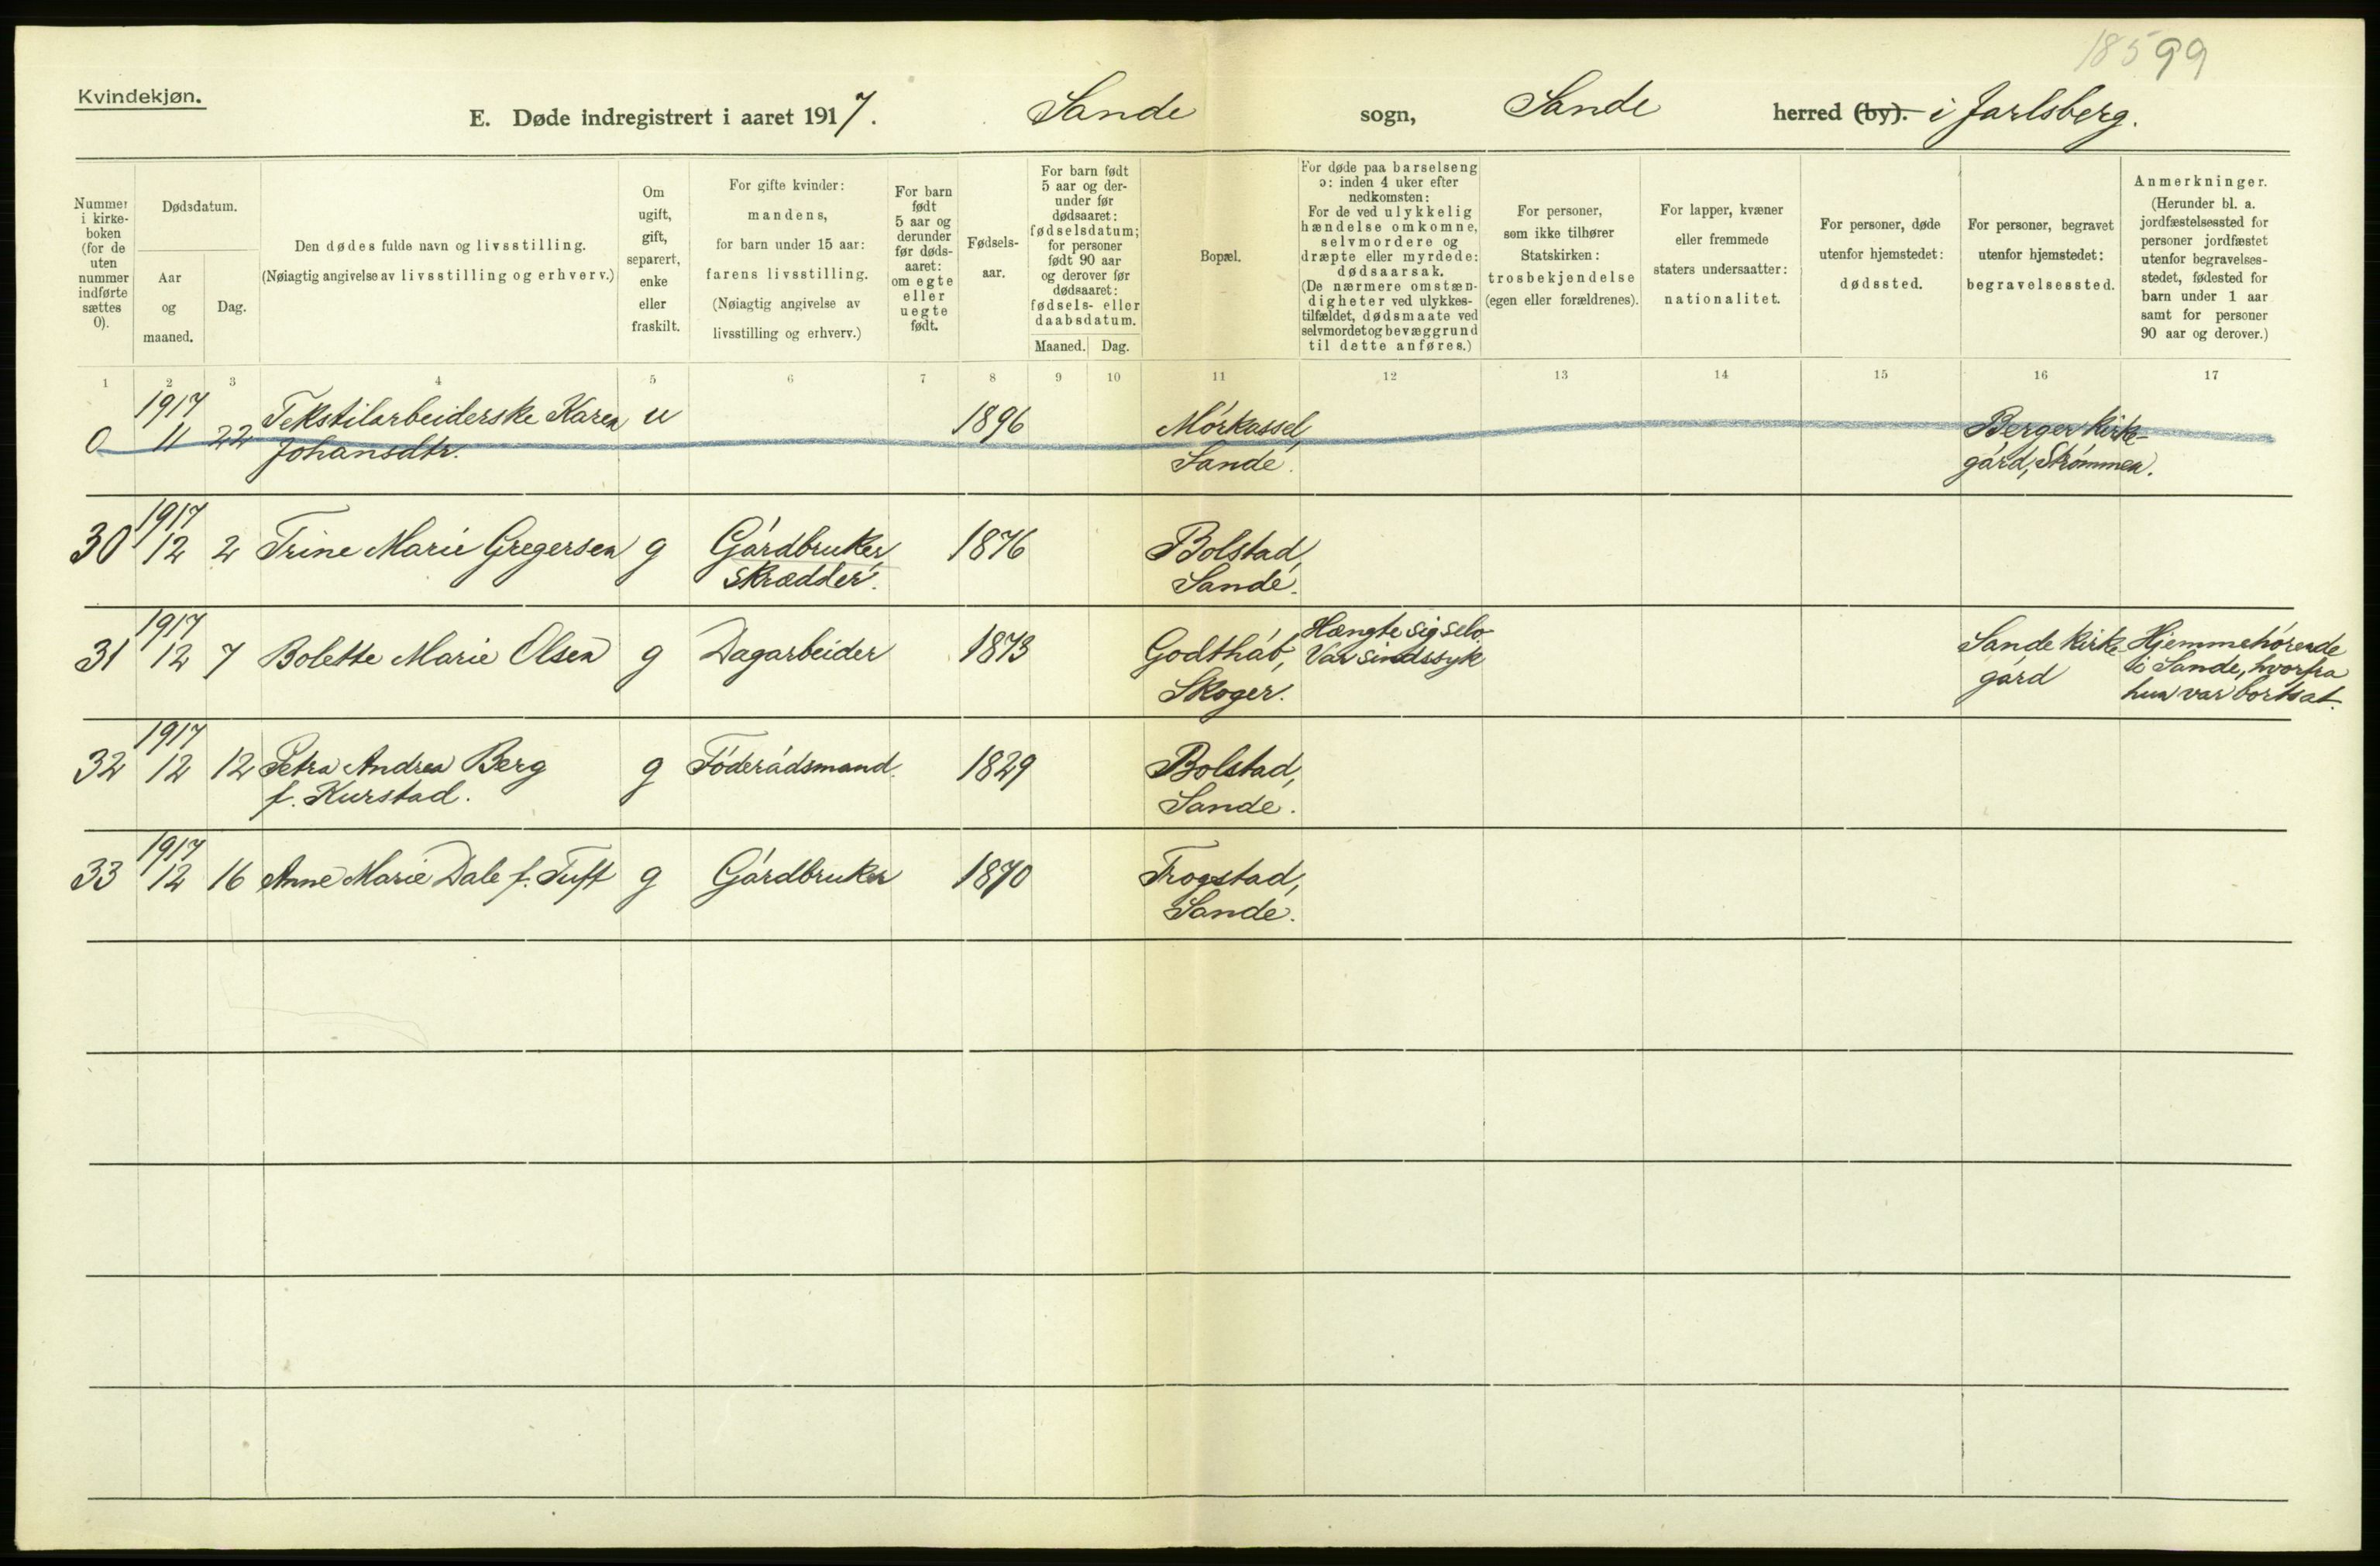 18599
Kvindekjøn.
E. Døde indregistrert i aaret 1917. Sande sogn, Sande herred (by). i Jarlsberg.
Nummer
i kirke-
boken
(for de
uten
nummer
indførte
sættes
0).
Dødsdatum.
Aar
og
maaned.
Dag.
Den dødes fulde navn og livsstilling.
(Nøiagtig angivelse av livsstilling og erhverv.)
Om
ugift,
gift,
separert,
enke
eller
fraskilt.
For gifte kvinder:
mandens,
for barn under 15 aar:
farens livsstilling.
(Nøiagtig angivelse av
livsstilling og erhverv.)
For barn
født
5 aar og
derunder
før døds-
aaret:
om egte
eller
uegte
født.
Fødsels-
aar.
For barn født
5 aar og der-
under før
dødsaaret:
fødselsdatum;
for personer
født 90 aar
og derover før
dødsaaret:
fødsels- eller
daabsdatum.
Maaned. Dag.
Bopæl.
For døde paa barselseng
ɔ: inden 4 uker efter
nedkomsten:
For de ved ulykkelig
hændelse omkomne,
selvmordere og
dræpte eller myrdede:
dødsaarsak.
(De nærmere omstæn-
digheter ved ulykkes-
tilfældet, dødsmaate ved
selvmordet og bevæggrund
til dette anføres.)
For personer,
som ikke tilhører
Statskirken:
trosbekjendelse
(egen eller forældrenes).
For lapper, kvæner
eller fremmede
staters undersaatter:
nationalitet.
For personer, døde
utenfor hjemstedet:
dødssted.
For personer, begravet
utenfor hjemstedet:
begravelsessted.
Anmerkninger.
(Herunder bl. a.
jordfæstelsessted for
personer jordfæstet
utenfor begravelses-
stedet, fødested for
barn under 1 aar
samt for personer
90 aar og derover.)
1 2 3 4 5 6 7 8 9 10 11 12 13 14 15 16 17
1917
0 11 22 Tekstilarbeiderske Karen u 1896 Mórkassel, Berger Kirk-
Johansdtr. Sande. gård, Strómmen.
1917
30 12 2 Trine Marie Gregersen g Gårdbruker, 1876 Bolstad,
skrædder. Sande.
1917 Hængte sig selv.
31 12 7 Bolette Marie Olsen g Dagarbeider 1873 Godthåb, Var sindssyk Sande kirke- Hjemmehórende
Skoger. gård ti Sande, hvorfra
hun var bortsat.
1917
32 12 12 Petra Andrea Berg g Fóderådsmand. 1829 Bolstad,
f. Kurstad. Sande.
1917
33 12 16 Anne Marie Dale f. Tuft g Gårdbruker 1870 Trogstad,
Sande.